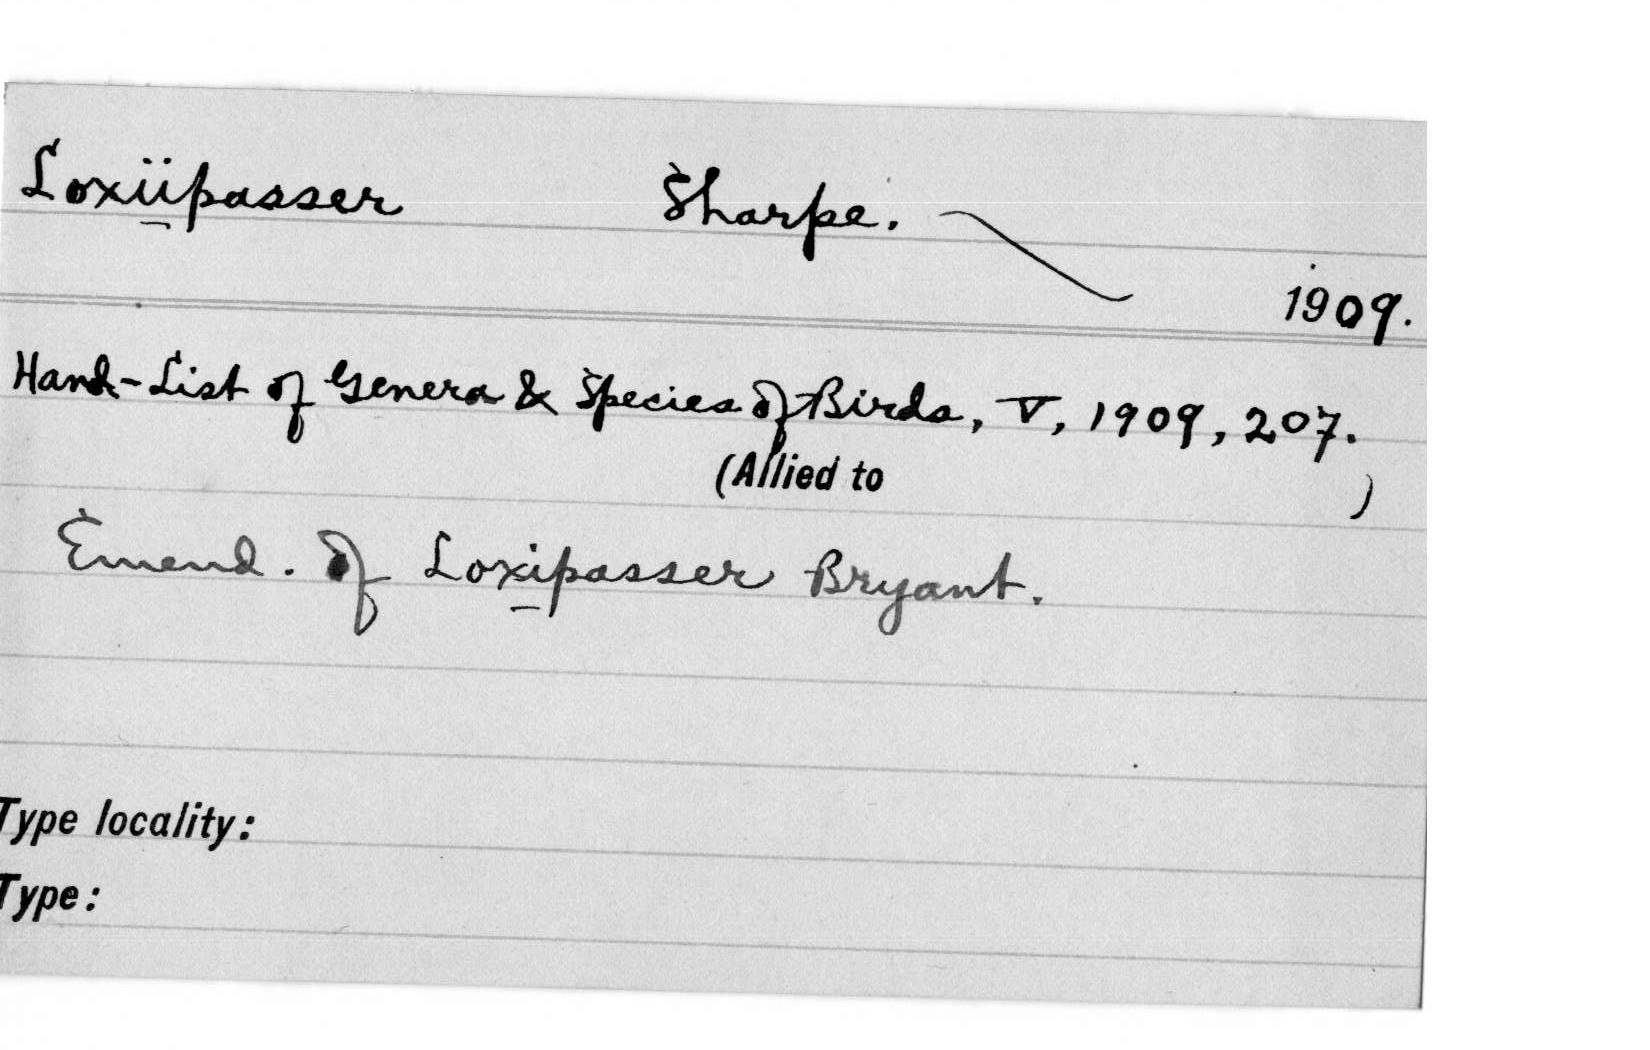 Loxiipasser Sharpe.
1909.
Hand-List of Genera & Species of Birds, V, 1909, 207.
(Allied to )
Emend. of Loxipasser Bryant.
Type locality:
Type: